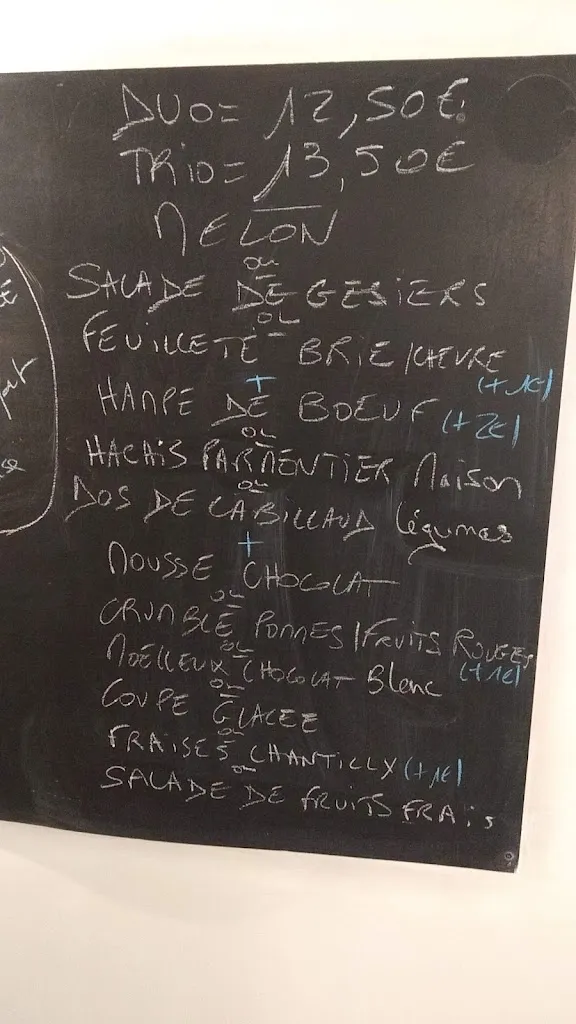 DUO= 12,50€
TRIO= 13,50€
MELON
ou
SALADE DE GESIERS
ou
FEUILLETÉ BRIE/CHEVRE
(+1€)
+
HAMPE DE BOEUF (+2€)
ou
HACAIS PARMENTIER Maison
ou
DOS DE CABILLAUD légumes
+
MOUSSE CHOCOLAT
ou
CRUMBLE POMMES/FRUITS ROUGES
ou
MOELLEUX CHOCOLAT Blanc (+1€)
ou
COUPE GLACEE
ou
FRAISES CHANTILLY (+1€)
ou
SALADE DE FRUITS FRAIS